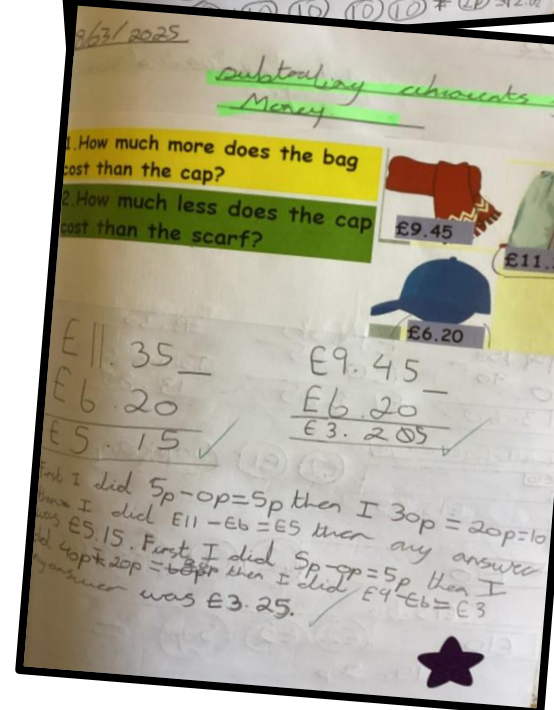 (10) (10) (10) * (2p) = £2.0
8/03/2025
Subtracting amounts
Money
1.How much more does the bag
cost than the cap?
2.How much less does the cap
cost than the scarf?
£9.45
£11.
£6.20
£11.35 –
£6.20
£5.15 ✓
£9.45 –
£6.20
£3.25 ✓
First I did 5p-0p=5p then I 30p = 20p=10
I did £11-£6=£5 then my answer
was £5.15. First I did 5p-0p=5p then I
did 40p 20p = then I did £9-£6=£3
my answer was £3.25.